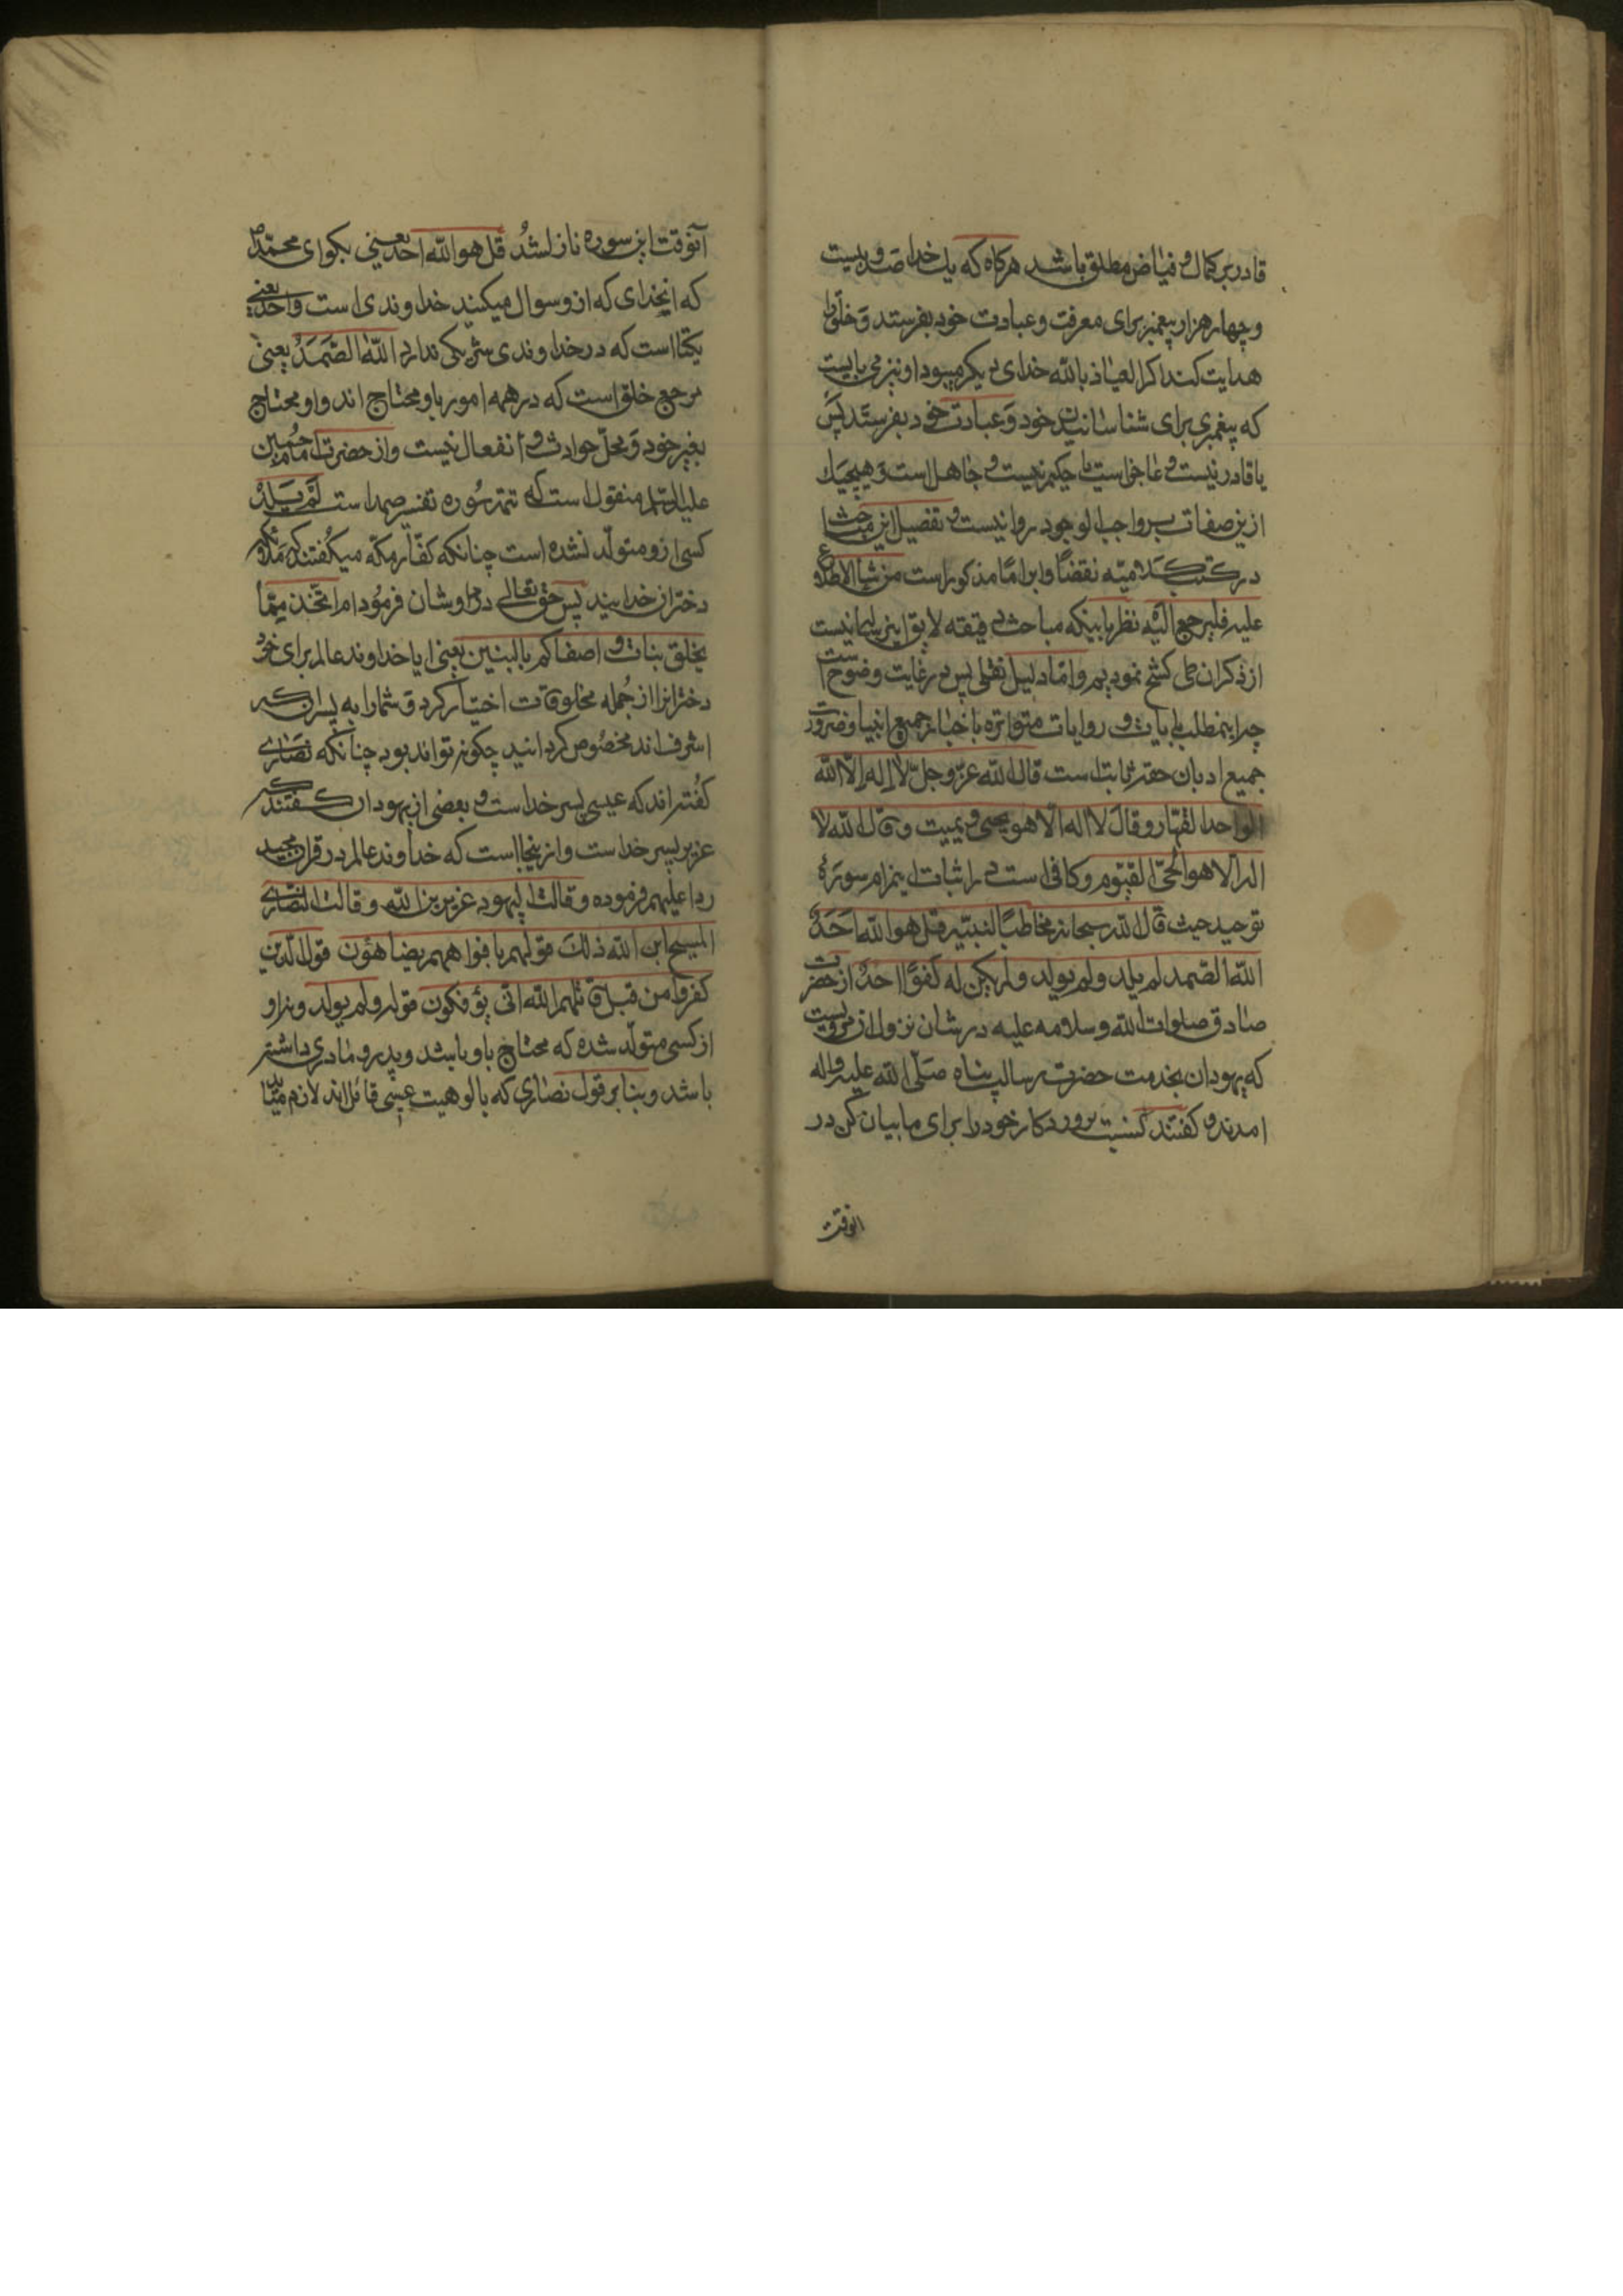 قادر بر کمال و فیاض مطلق باشد هرکاه که یك خدا صد و بیست
و چهار هزار پیغمبر برای معرفت و عبادت خود بفرستد و خلق را
هدایت کند اکر العیاذ بالله خدای دیکر میبود او نیز می بایست
که پیغمبری برای شناسانیدن خود و عبادت خود بفرستد پس
یا قادر نیست و عاجز است یا حکیم نیست و جاهل است و هیچیك
ازین صفات بر واجب الوجود روا نیست و تفصیل این مباحث
در کتب کلامیه نقضا و ابراما مذکور است من شاء الاطلاع
علیه فلیرجع الیه نظر باینکه مباحث دقیقه لایق این رساله نیست
از ذکر ان طی کشح نمودیم و اما دلیل نقلی پس در غایت وضوح است
چرا اینمطلب بایات و روایات متواتره باخبار جمیع انبیا و ضرورت
جمیع ادیان حقه ثابت است قال الله عز و جل لا اله الا الله
الواحد القهار و قال لا اله الا هو یحیی و یمیت و قال الله لا
اله الا هو الحی القیوم و کافی است در اثبات اینمرام سورهٔ
توحید حیث قال الله سبحانه مخاطبا لنبیه قل هو الله احد
الله الصمد لم یلد و لم یولد و لم یکن له کفوا احد از حضرت
صادق صلوات الله و سلامه علیه در شان نزول ان مرویست
که یهودان بخدمت حضرت رسالت پناه صلی الله علیه و اله
امدند و کفتند که نسبت پروردکار خود را برای ما بیان کن در
انوقت
آنوقت این سوره نازل شد قل هو الله احد یعنی بکو ای محمد ص
که انخدای که ازو سوال میکنید خداوندی است واحد یعنی
یکتا است که در خداوندی شریکی ندارد الله الصمد یعنی
مرجع خلق است که در همه امور باو محتاج اند و او محتاج
بغیر خود و محل حوادث و انفعال نیست و از حضرت امام حسین
علیه السلام منقول است که تتمه سوره تفسیر صمد است لم یلد
کسی ازو متولد نشده است چنانکه کفار مکه میکفتند که ملائکه
دختران خدایند پس حق تعالی در رد اوشان فرمود ام اتخذ مما
یخلق بنات و اصفاکم بالبنین یعنی ایا خداوند عالم برای خود
دخترانرا از جمله مخلوقات اختیار کرد و شما را به پسران که
اشرف اند مخصوص کردانید چکونه تواند بود چنانکه نصاری
کفته اند که عیسی پسر خداست و بعضی از یهودان کفتند که
عزیر پسر خداست و از ینجا است که خداوند عالم در قران مجید
ردا علیهم فرموده و قالت الیهود عزیر بن الله و قالت النصاری
المسیح ابن الله ذلك قولهم بافواههم یضاهؤن قول الذین
کفروا من قبل قاتلهم الله انی یؤفکون قوله و لم یولد و نه او
از کسی متولد شده که محتاج باو باشد و پدر و مادری داشته
باشد و بنا بر قول نصاری که بالوهیت عیسی قائل اند لازم میاید